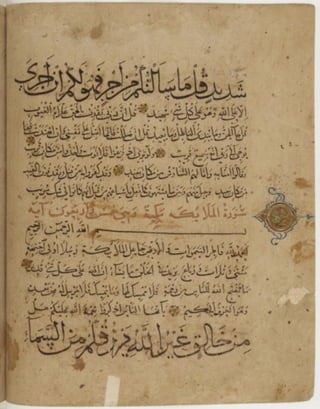 شديد قل ما سألتكم من اجر فهو لكم ان اجرى
الا على الله وهو على كل شىء شهيد قل ان ربى يقذف بالحق علام الغيوب
قل جاء الحق وما يبدئ الباطل وما يعيد قل ان ضللت فانما اضل على نفسى وان اهتديت فبما
يوحى الى ربى انه سميع قريب ولو ترى اذ فزعوا فلا فوت واخذوا من مكان قريب
وقالوا امنا به وانى لهم التناوش من مكان بعيد وقد كفروا به من قبل ويقذفون بالغيب
من مكان بعيد وحيل بينهم وبين ما يشتهون كما فعل باشياعهم من قبل انهم كانوا فى شك مريب
سورة الملائكة مكية وهى خمس واربعون آية
بسم الله الرحمن الرحيم
الحمد لله فاطر السموات والارض جاعل الملائكة رسلا اولى اجنحة
مثنى وثلاث ورباع يزيد فى الخلق ما يشاء ان الله على كل شىء قدير
ما يفتح الله للناس من رحمة فلا ممسك لها وما يمسك فلا مرسل له من بعده
وهو العزيز الحكيم يا ايها الناس اذكروا نعمة الله عليكم هل
من خالق غير الله يرزقكم من السماء